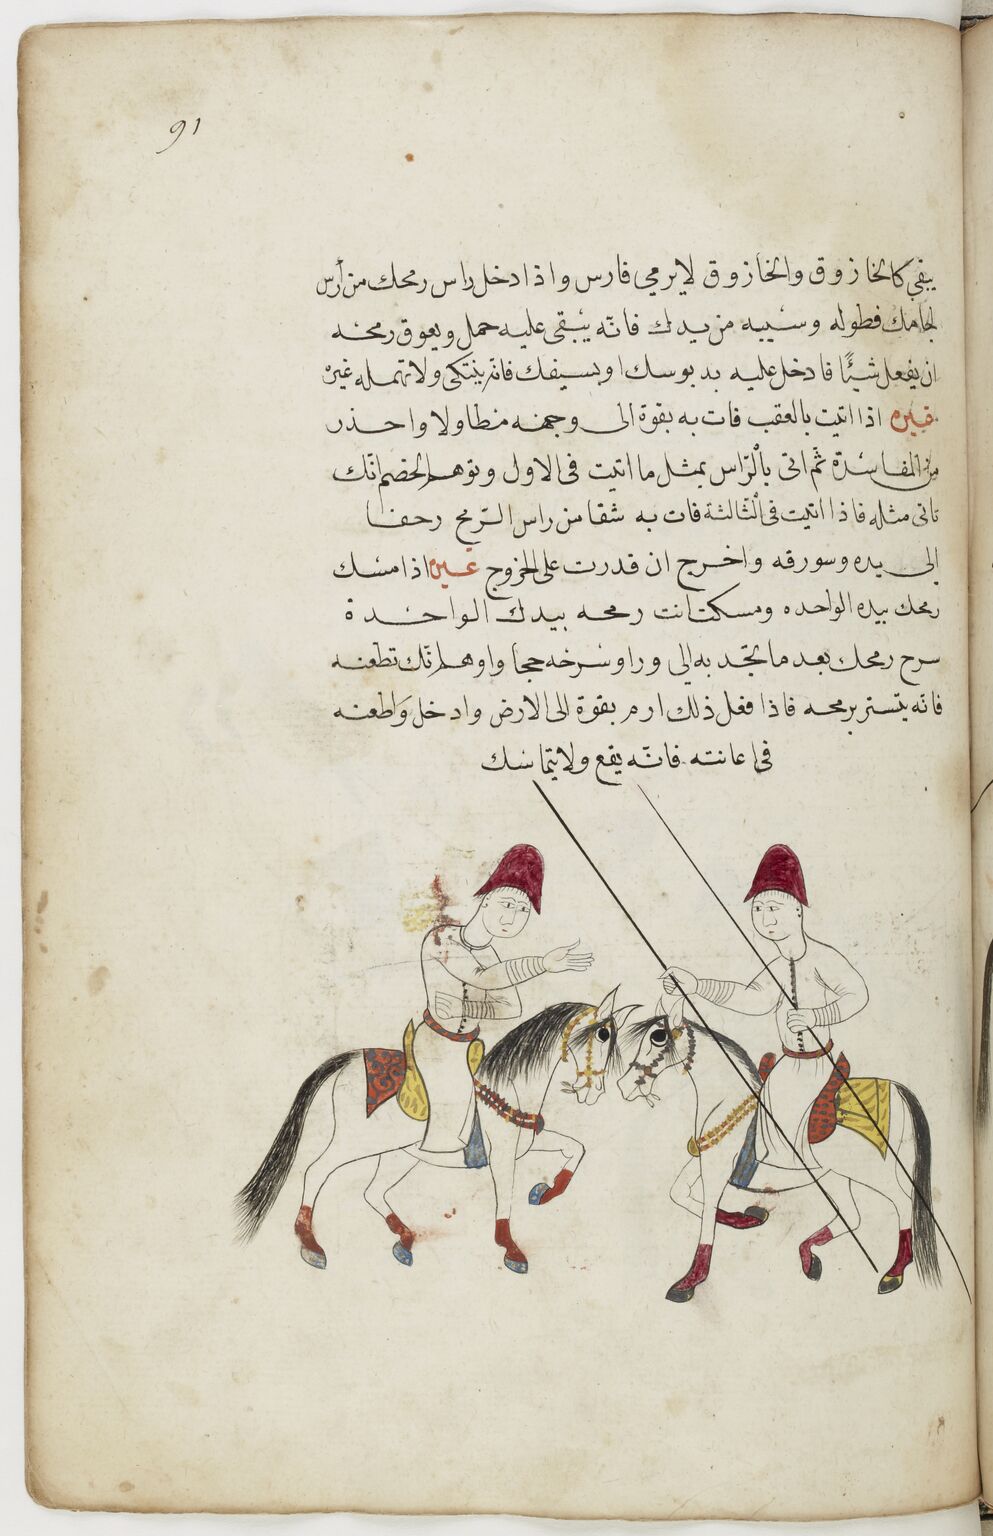 91
يبقي كالخازوق والخازوق لا يرمي فارس واذا دخل راس رمحك من رأس
لجامك فطوله وسيبه من يدك فانّه يبقى عليه حمل ويعوق رمحه
ان يفعل شيئًا فادخل عليه بدبوسك او بسيفك فانه ينتكى ولا تهمله غيره
غيره اذا اتيت بالعقب فات به بقوة الى وجهه منطاولا واحذر
من المفاسدة ثم اتى بالرّاس بمثل ما اتيت فى الاول وتوهم الخصم انّك
تاتى مثله فاذا اتيت فى الثالثة فات به شقا من راس الرّمح رحفا
الى يده وسورقه واخرج ان قدرت على الخروج غيره اذا مسك
رمحك بيده الواحده ومسكت انت رمحه بيدك الواحدة
سرح رمحك بعد ما تجد به الى ورا وسرخه واوهم انّك تطعنه
فانه يتستر برمحه فاذا فعل ذلك ارم بقوة الى الارض وادخل واطعنه
فى اعانته فانّه يقع ولا يتماسك